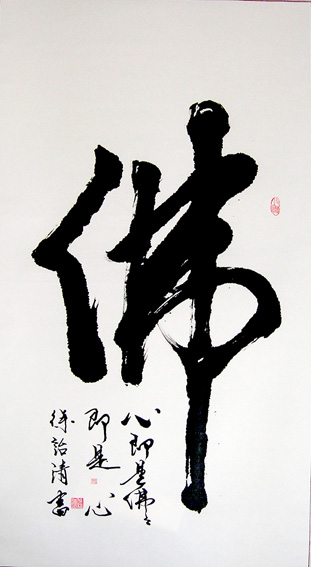 佛
心即是佛〻
即是心
徐詒清書